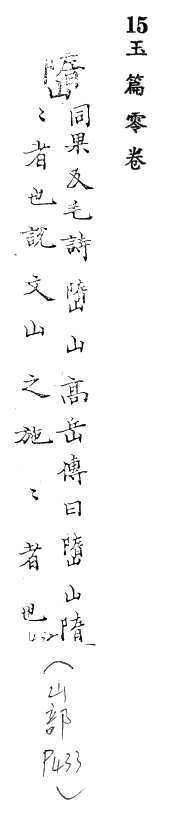 15玉篇零卷
嶞
同果反毛詩嶞山高岳傳曰嶞山隋
〻者也說文山之施〻者也
(山部P433)